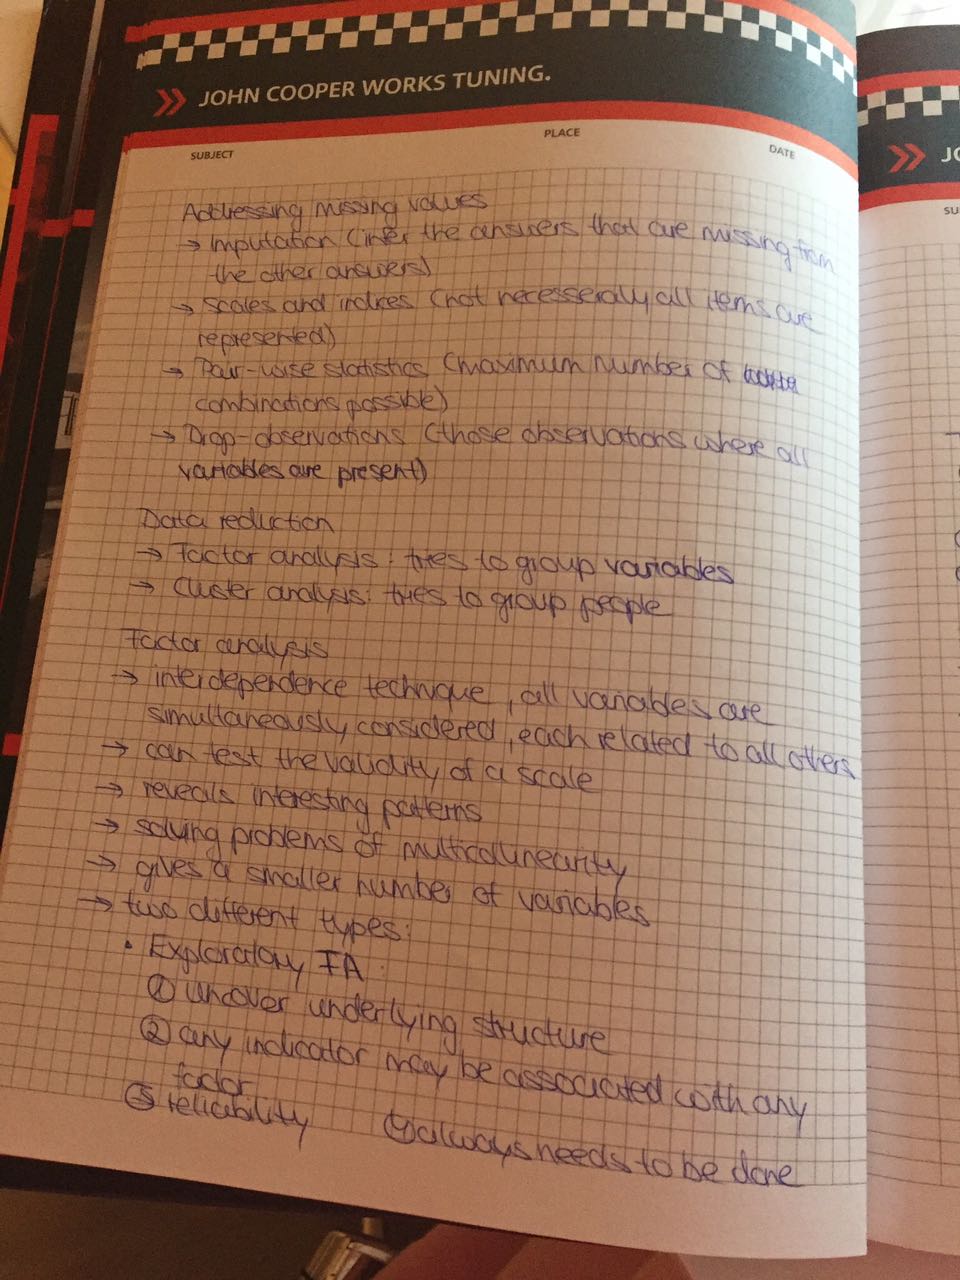 JOHN COOPER WORKS TUNING.
SUBJECT
PLACE
DATE
Addressing missing values
→ Imputation (infer the answers that are missing from
the other answers)
→ Scales and indices (not necesserally all items are
represented)
→ Pair-wise statistics (maximum number of
combinations possible)
→ Drop-observations (those observations where all
variables are present)
Data reduction
→ Factor analysis: tries to group variables
→ Cluster analysis: tries to group people
Factor analysis
→ interdependence technique, all variables are
simultaneously considered, each related to all others
→ can test the validity of a scale
→ reveals interesting patterns
→ solving problems of multicolinearity
→ gives a smaller number of variables
→ two different types:
• Exploratory FA:
① uncover underlying structure
② any indicator may be associated with any
factor
③ reliability ④ always needs to be done
JO
SU